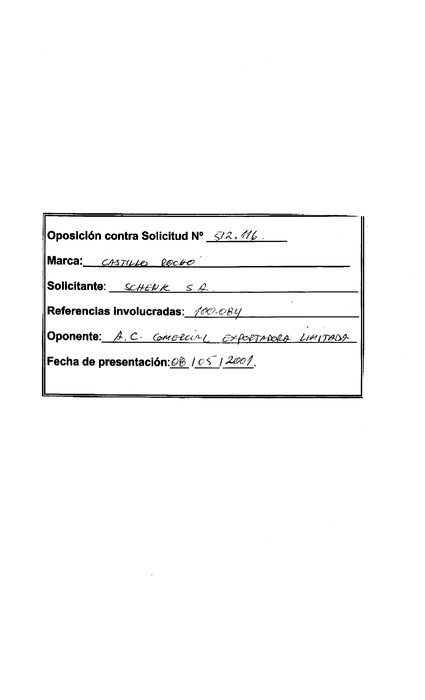 Oposición contra Solicitud Nº 512.116.
Marca: CASTILLO ROCHO
Solicitante: SCHENK S.A.
Referencias Involucradas: 100.084
Oponente: A.C. COMERCIAL EXPORTADORA LIMITADA
Fecha de presentación: 08/05/2001.